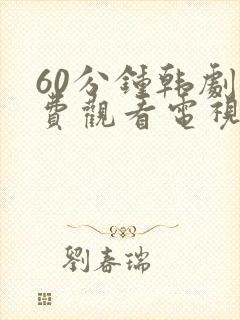 60分鍾韩劇
費觀看電視
劉春瑞